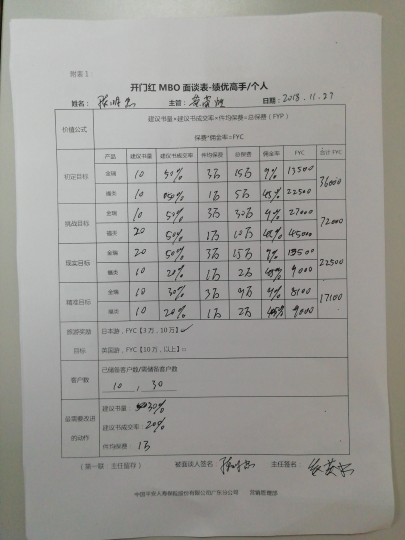 附表1:
开门红 MBO 面谈表-绩优高手/个人
姓名: 主管: 日期: 2018.11.27
价值公式 建议书量*建议书成交率*件均保费=总保费(FYP)
保费*佣金率=FYC
产品 建议书量 建议书成交率 件均保费 总保费 佣金率 FYC 合计 FYC
初定目标 金瑞 10 50% 3万 15万 9% 13500 36000
福类 10 50% 1万 5万 45% 22500
挑战目标 金瑞 10 50% 3万 30万 9% 27000 72000
福类 20 50% 1万 10万 45% 45000
现实目标 金瑞 20 50% 3万 15万 9% 13500 22500
福类 10 20% 1万 2万 45% 9000
精准目标 金瑞 10 30% 3万 9万 9% 8100 17100
福类 10 20% 1万 2万 45% 9000
旅游奖励 日本游,FYC【3万,10万】✓
目标 英国游,FYC【10万,以上】□
客户数 已储备客户数/需储备客户数
10 , 30
最需要改进 建议书量: 30%
的动作 建议书成交率: 20%
件均保费: 1万
(第一联:主任留存) 被面谈人签名: 主任签名:
中国平安人寿保险股份有限公司广东分公司